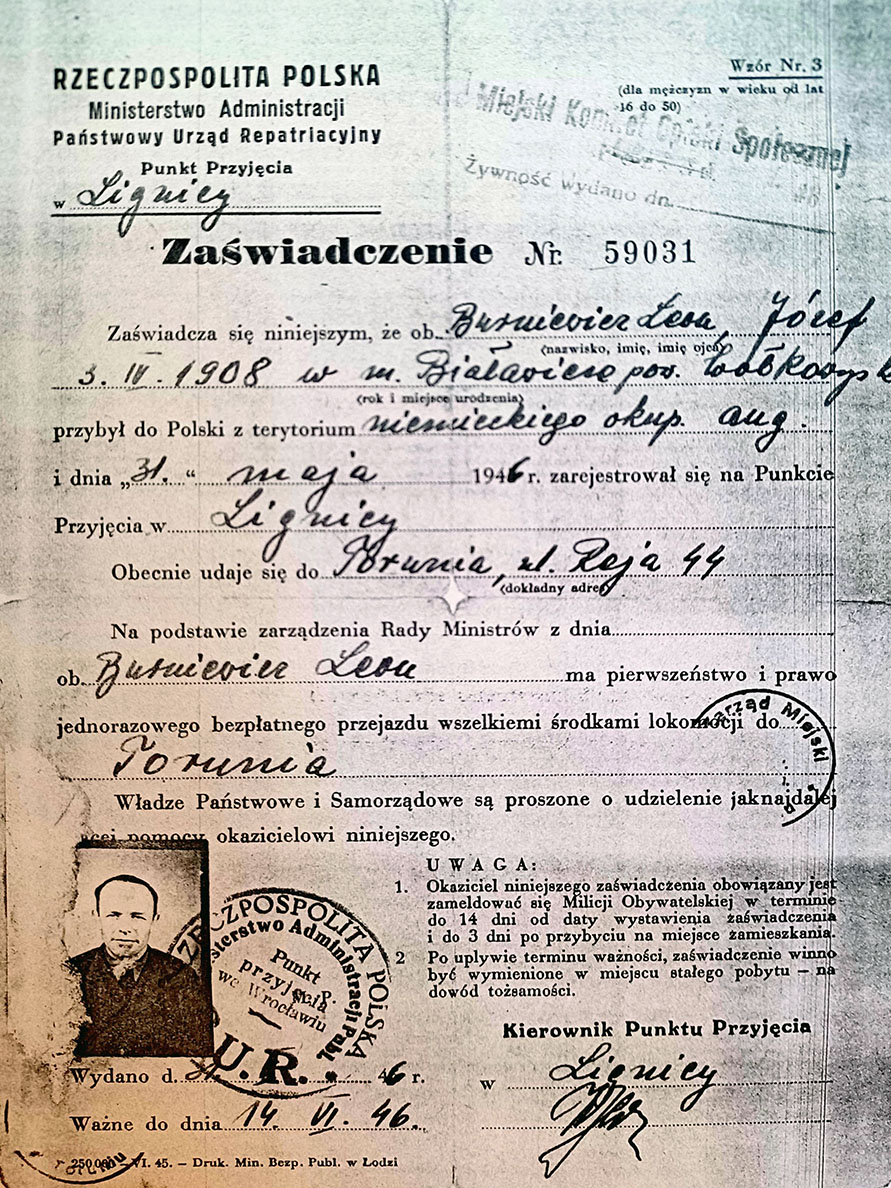 RZECZPOSPOLITA POLSKA
Ministerstwo Administracji
Państwowy Urząd Repatriacyjny
Punkt Przyjęcia
w Lignicy
Wzór Nr. 3
(dla mężczyzn w wieku od lat
16 do 50)
Miejski Komitet Opieki Społecznej
Żywność wydano dn.
Zaświadczenie Nr. 59031
Zaświadcza się niniejszym, że ob. Leon Józef
(nazwisko, imię, imię ojca)
3. IV. 1908 w m. pow.
(rok i miejsce urodzenia)
przybył do Polski z terytorium niemieckiego okup. ang.
i dnia „31.“ maja 1946 r. zarejestrował się na Punkcie
Przyjęcia w Lignicy
Obecnie udaje się do Torunia, ul. Reja 44
(dokładny adres)
Na podstawie zarządzenia Rady Ministrów z dnia
ob. Leon ma pierwszeństwo i prawo
jednorazowego bezpłatnego przejazdu wszelkiemi środkami lokomocji do
Torunia
Zarząd Miejski
Władze Państwowe i Samorządowe są proszone o udzielenie jaknajdalej
pomocy okazicielowi niniejszego.
UWAGA:
1. Okaziciel niniejszego zaświadczenia obowiązany jest
zameldować się Milicji Obywatelskiej w terminie
do 14 dni od daty wystawienia zaświadczenia
i do 3 dni po przybyciu na miejsce zamieszkania.
2 Po upływie terminu ważności, zaświadczenie winno
być wymienione w miejscu stałego pobytu – na
dowód tożsamości.
RZECZPOSPOLITA POLSKA
Ministerstwo Administracji Publ.
Punkt
przyjęcia
we Wrocławiu
U.R.
Kierownik Punktu Przyjęcia
w Lignicy
Wydano d. 46 r.
Ważne do dnia 14. VI. 46.
VI. 45. – Druk. Min. Bezp. Publ. w Łodzi